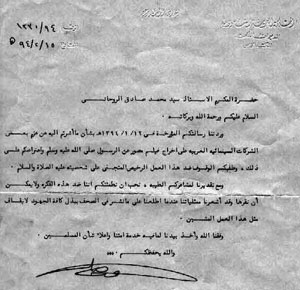 ١٣٢٠/٩٤
٩٤/٢/١٥ ه
حضرة المكرم الاستاذ سيد محمد صادق الروحاني
السلام عليكم ورحمة الله وبركاته
وردتنا رسالتكم المؤرخة في ١٣٩٤/١/١٩ بشأن ما أشرتم اليه من عزم بعض
الشركات السينمائية العربية على اخراج فيلم مصور عن الرسول صلى الله عليه وسلم واعتراضكم على
ذلك وطلبكم الوقوف ضد هذا العمل الرخيص المتجني على شخصيته عليه الصلاة والسلام .
ومع تقديرنا لمشاعركم الطيبه نحب ان نطمئنكم اننا ضد هذه الفكره ولا يمكن
أن نقرها وقد أشعرنا ممثلياتنا عندما اطلعنا على مانشر في الصحف ببذل كافة الجهود لايقاف
مثل هذا العمل المشين .
وفقنا الله وأخذ بيدنا لمافيه خدمة امتنا واعلاء شأن المسلمين .
والله يحفظكم